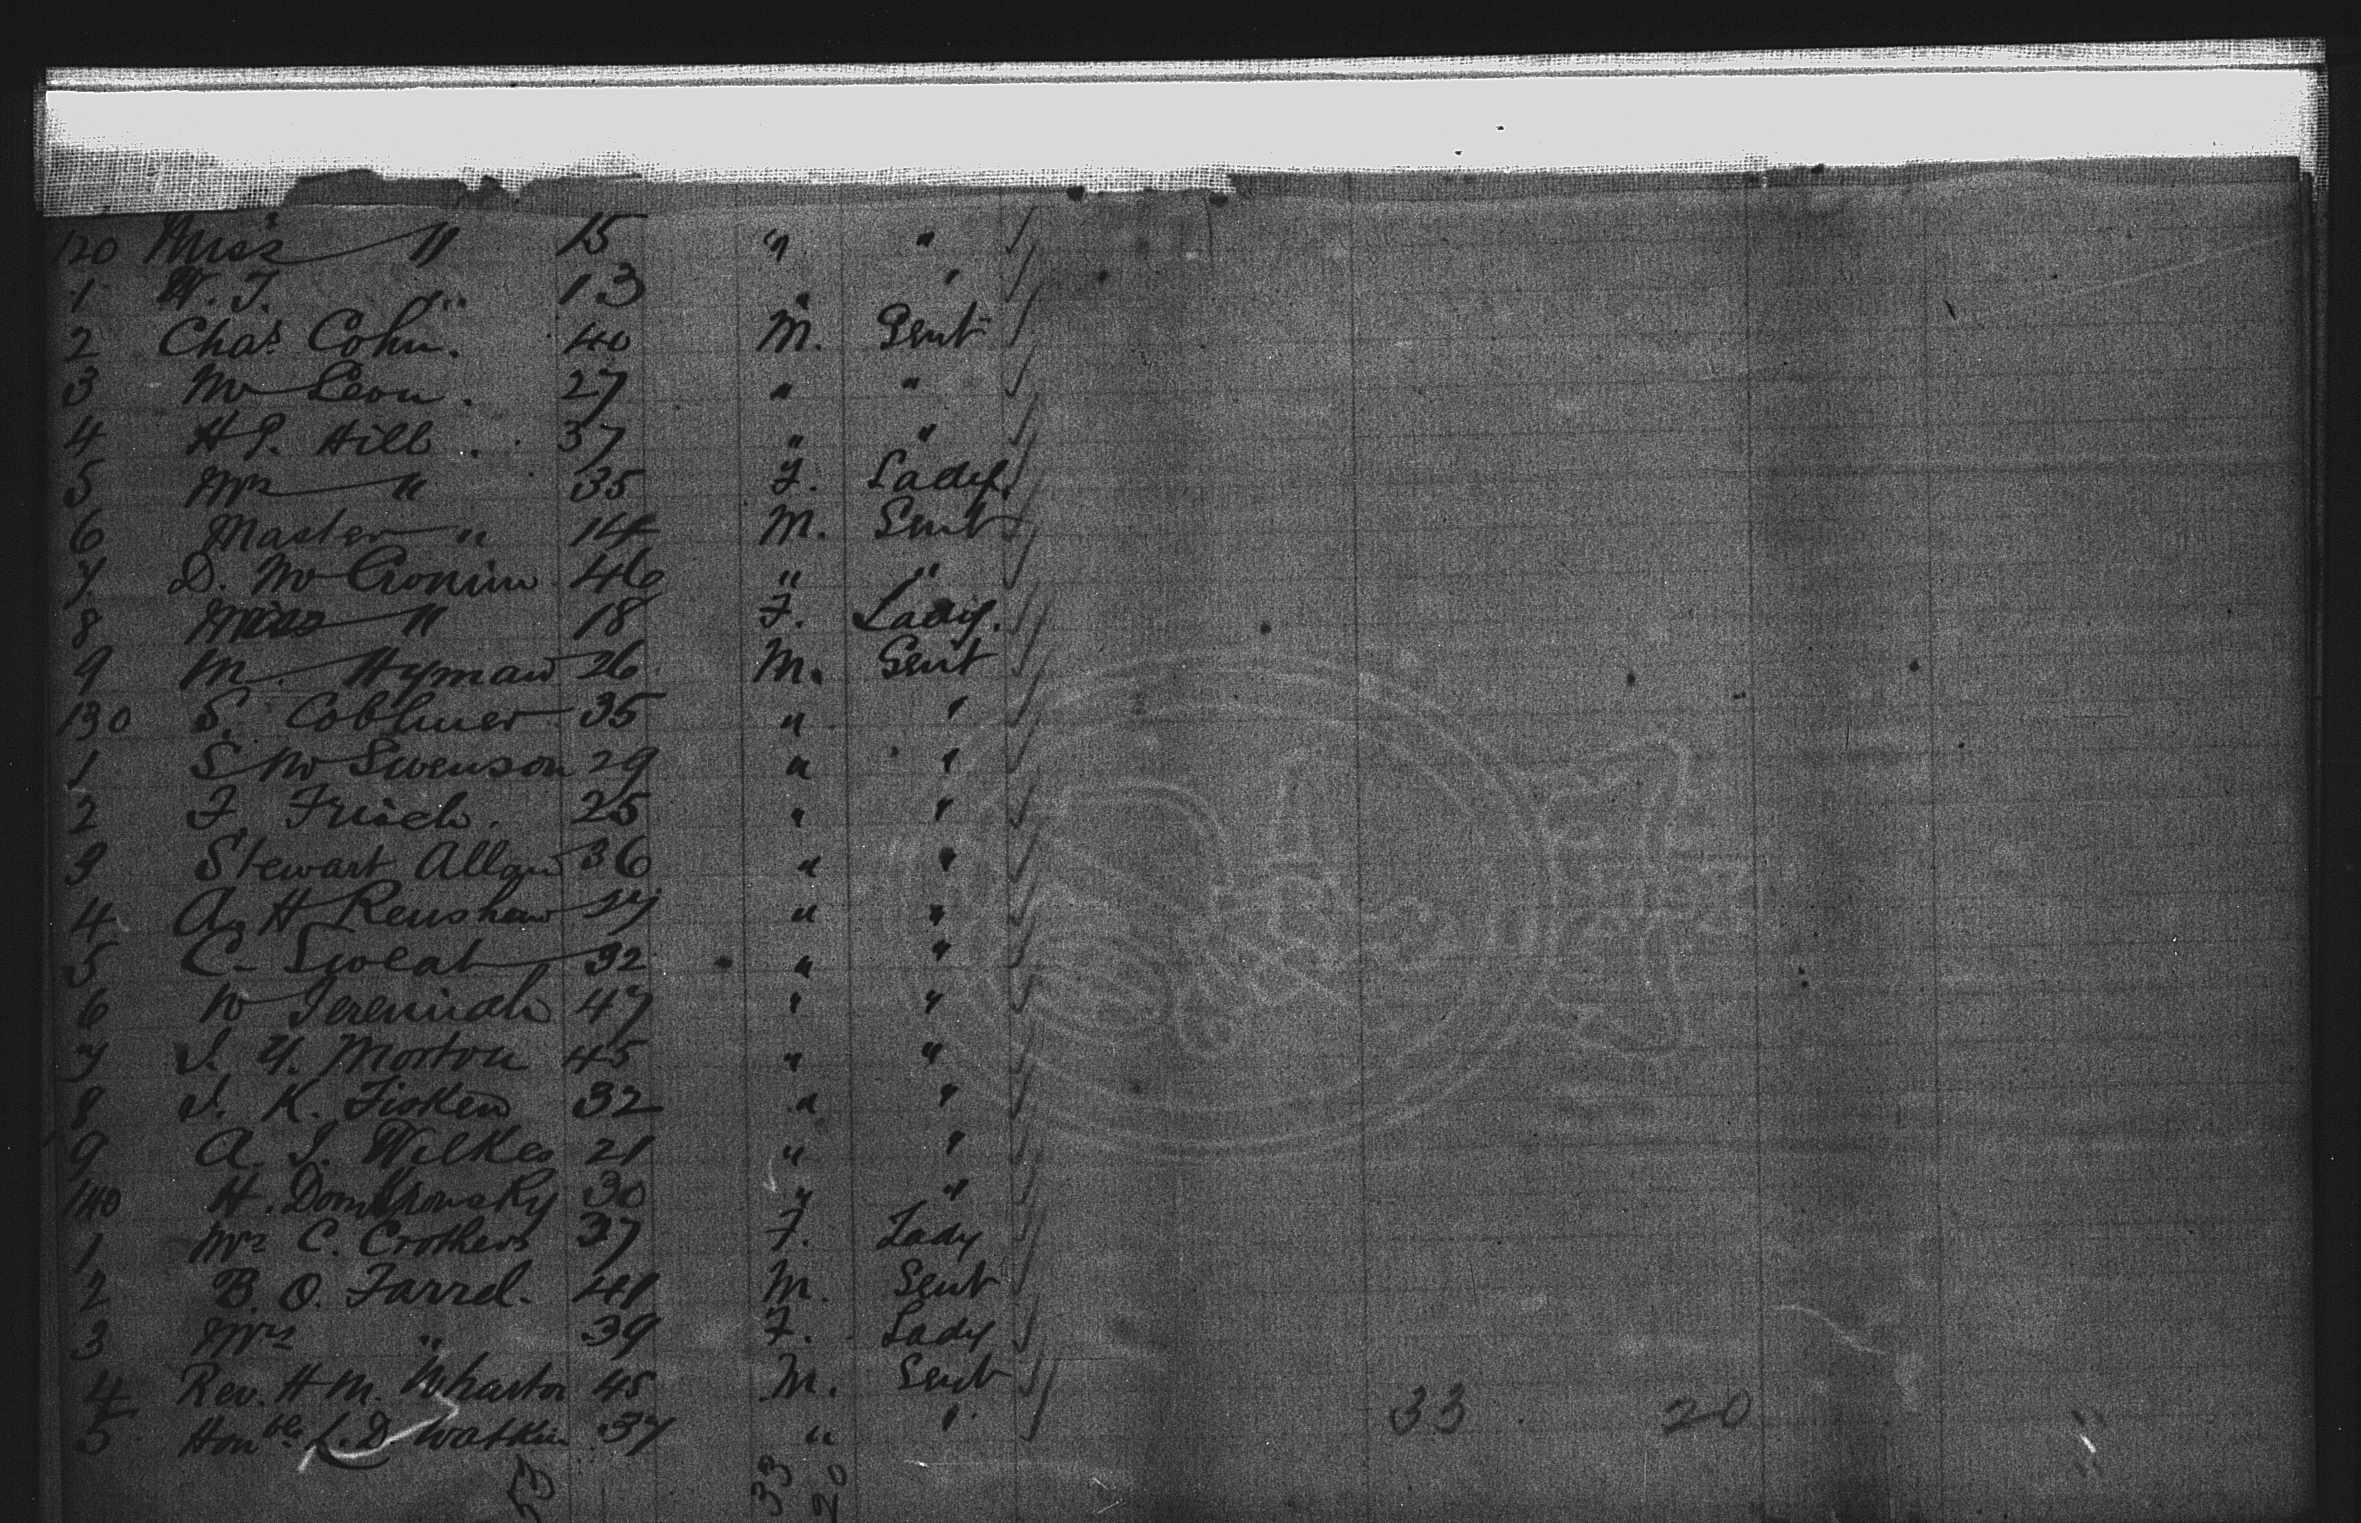 120 Miss " 15 " "
1 W. J. " 13 " "
2 Chas. Cohn. 40 M. Gent
3 M Leon. 27 " "
4 H P. Hill. 37 " "
5 Mrs " 35 F. Lady.
6 Master " 14 M. Gent
7 D. M Cronin 46 " "
8 Miss " 18 F. Lady.
9 M. Hyman 26 M. Gent
130 S. Coblmer 35 " "
1 S M Swenson 29 " "
2 F Frisch. 25 " "
3 Stewart Allan 36 " "
4 A. H Renshaw " "
5 C. Sweat 32 " "
6 W Jeremiah 47 " "
7 J. Y. Morton 45 " "
8 J. K. Fisken 32 " "
9 A. J. Wilkes 21 " "
140 H. Dombrowsky 30 " "
1 Mrs C. Crothers 37 F. Lady
2 B. O. Farrel. 41 M. Gent
3 Mrs " 39 F. Lady
4 Rev. H M. Wharton 45 M. Gent
5 Honble L. D. Watkin 37 " "
33 20
53 33 20